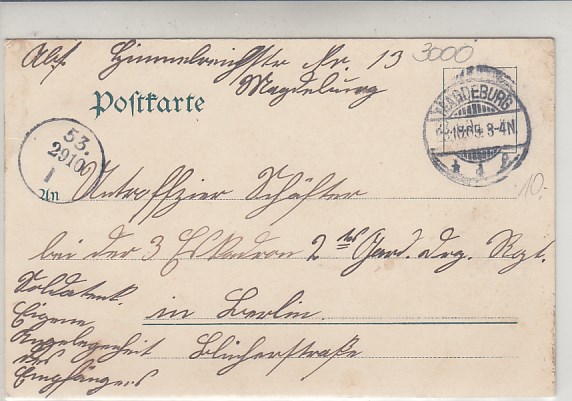 Abs. Himmelreichstr Nr. 13
Magdeburg
3000
Postkarte
MAGDEBURG
3-4N.
53.
2910
1
10.-
An Unteroffzier Schäfter
bei der 3 Eskadron 2tes Gard. Drg. Rgt.
in Berlin.
Blücherstraße
Soldatenb.
Eigene
Angelegenheit
des
Empfängers